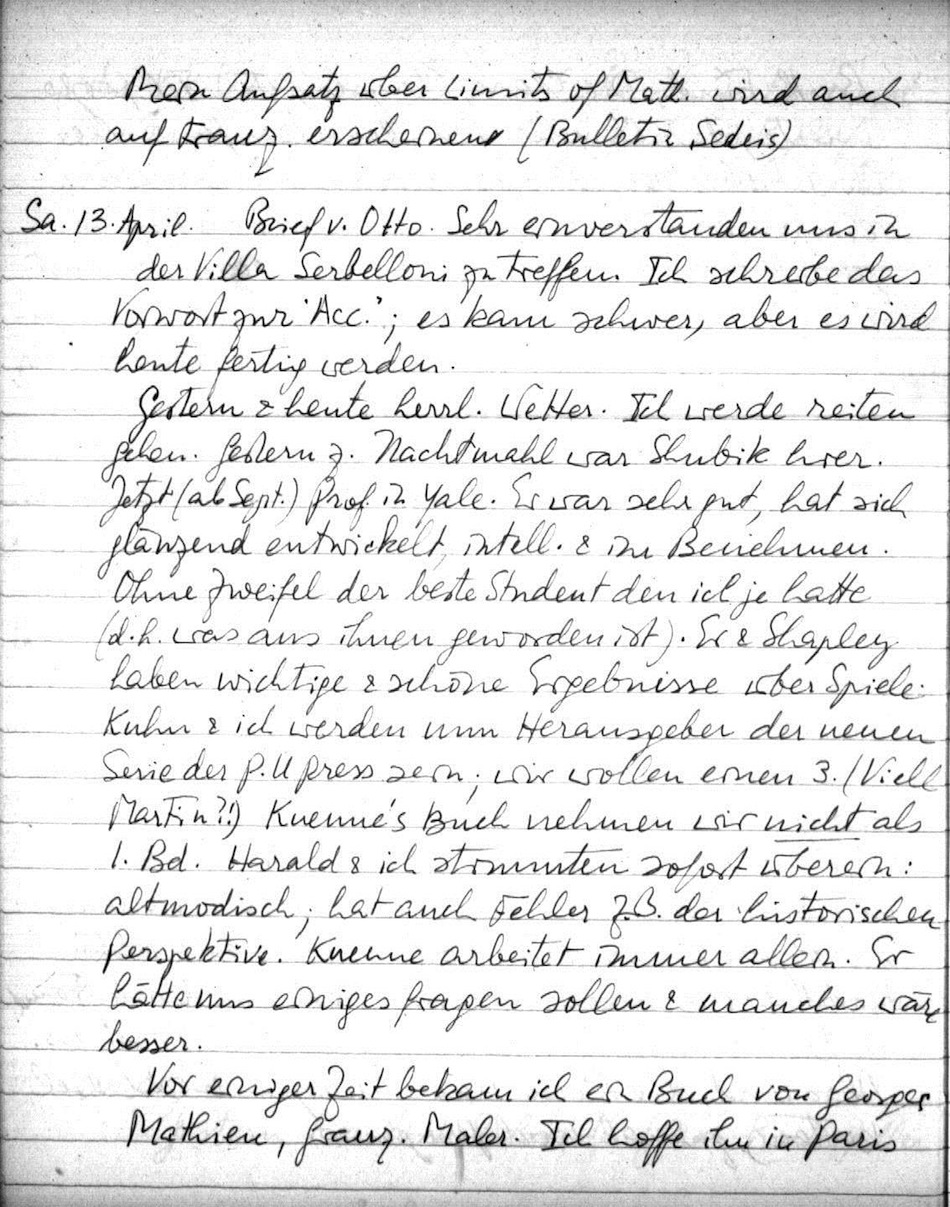 Mein Aufsatz über Limits of Math. wird auch
auf Franz. erscheinen (Bulletin Sedeis)
Sa. 13. April. Brief v. Otto. Sehr einverstanden uns in
der Villa Serbelloni zu treffen. Ich schreibe das
Vorwort zur 'Acc.'; es kam schwer, aber es wird
heute fertig werden.
Gestern & heute herrl. Wetter. Ich werde reiten
gehen. Gestern z. Nachtmahl war Shubik hier.
Jetzt (ab Sept.) Prof. in Yale. Er war sehr gut, hat sich
glänzend entwickelt, intell. & im Benehmen.
Ohne Zweifel der beste Student den ich je hatte
(d.h. was aus ihnen geworden ist). Er & Shapley
haben wichtige & schöne Ergebnisse über Spiele.
Kuhn & ich werden nun Herausgeber der neuen
Serie der P.U Press sein; wir wollen einen 3. (Viell
Martin?!) Kuenne's Buch nehmen wir nicht als
1. Bd. Harald & ich stimmten sofort überein:
altmodisch; hat auch Fehler z.B. der historischen
Perspektive. Kuenne arbeitet immer allein. Er
hätte uns einiges fragen sollen & manches wäre
besser.
Vor einiger Zeit bekam ich ein Buch von Georges
Mathieu, franz. Maler. Ich hoffe ihn in Paris